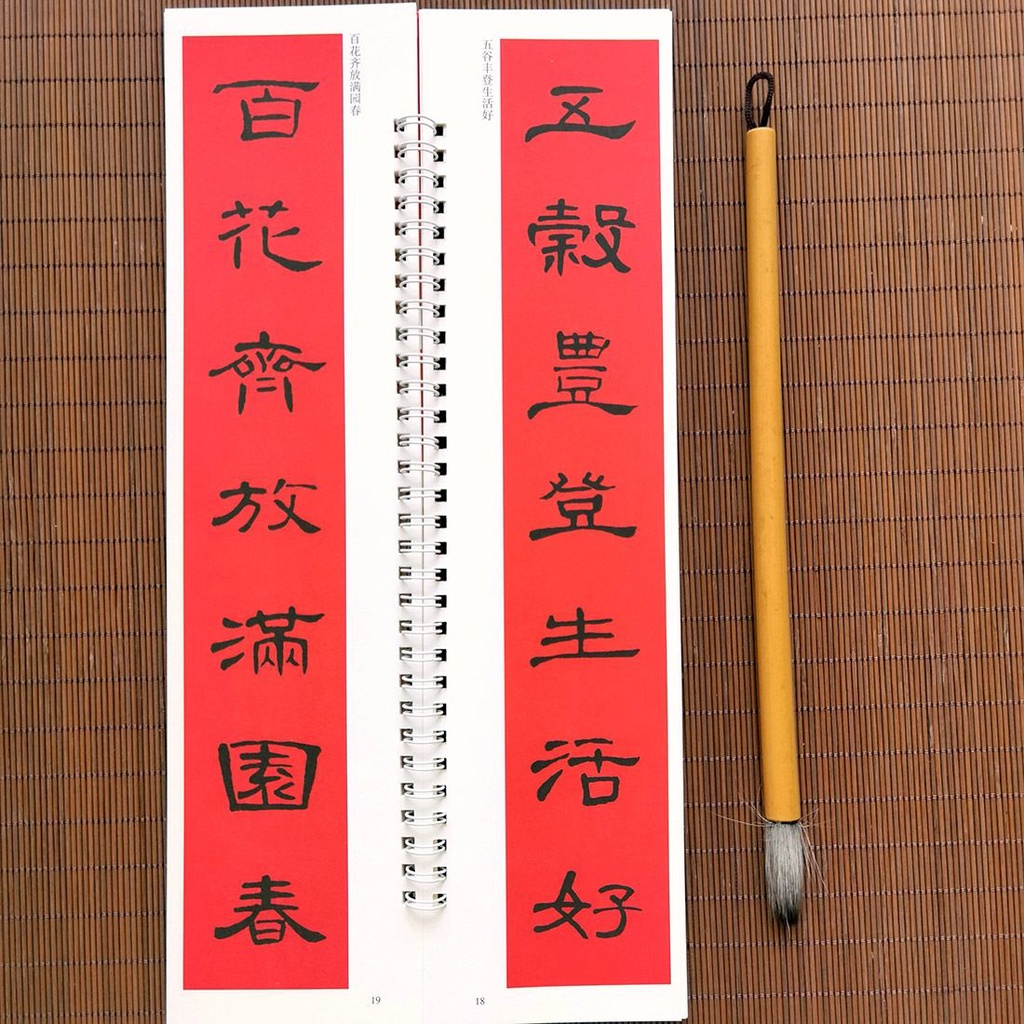 五穀豐登生活好
五谷丰登生活好
18
百花齊放滿園春
百花齐放满园春
19